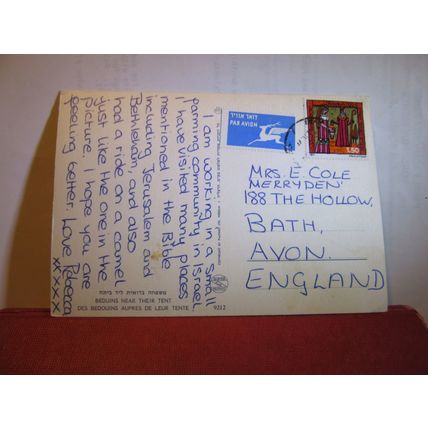 I am working in a small
farming community in Israel.
I have visited many places
mentioned in the Bible
including Jerusalem and
Bethlehem, and also
had a ride on a camel
just like the one in the
picture. I hope you are
feeling better. Love Rebecca
xxxxx
דואר אויר
PAR AVION
1.50
MRS. E. COLE
'MERRYDEN'
188 THE HOLLOW,
BATH,
AVON.
ENGLAND
משפחה בדואית ליד ביתה
BEDUINS NEAR THEIR TENT
DES BEDOUINS AUPRES DE LEUR TENTE
9212